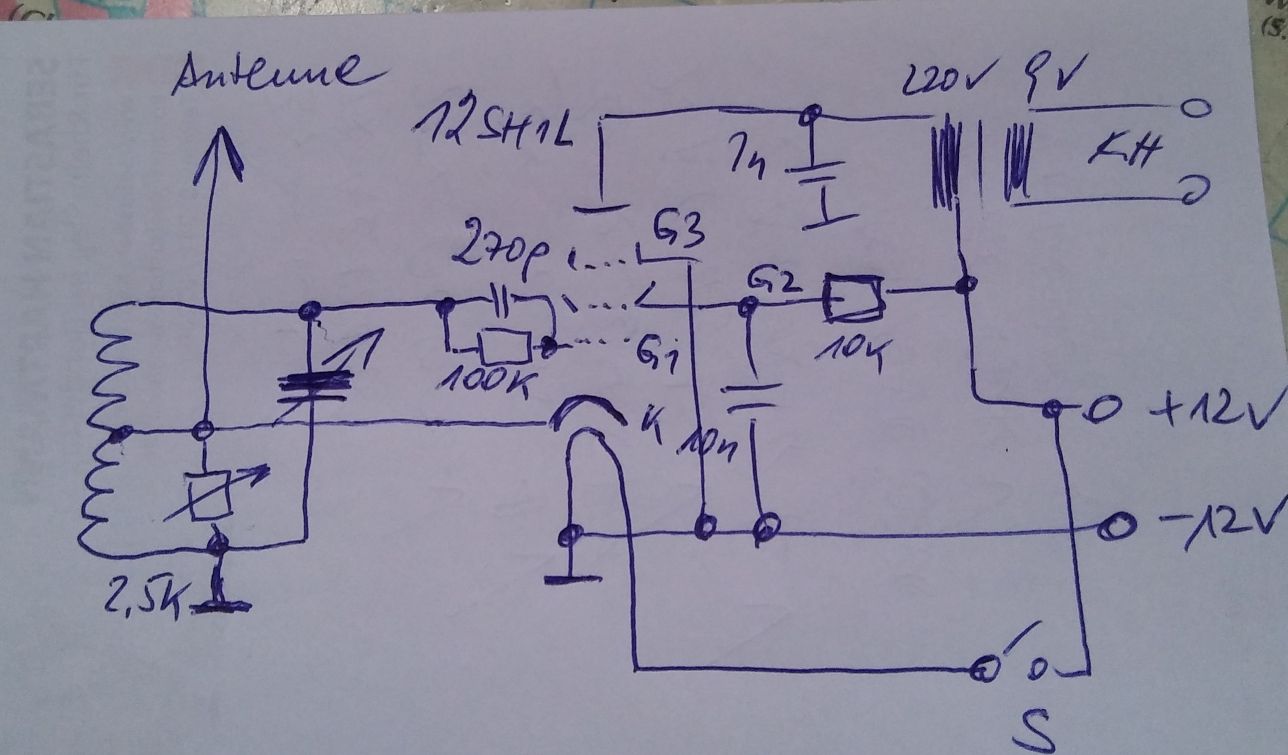 Antenne
220V 9V
12SH1L
1n
KH
G3
270p
G2
G1
10K
100K
K
10n
+12V
-12V
2,5K
S